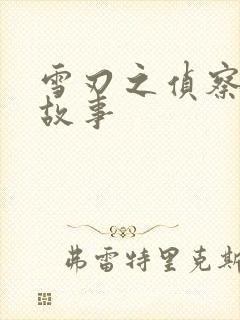 雪刃之偵察
故事
弗雷特里克斯